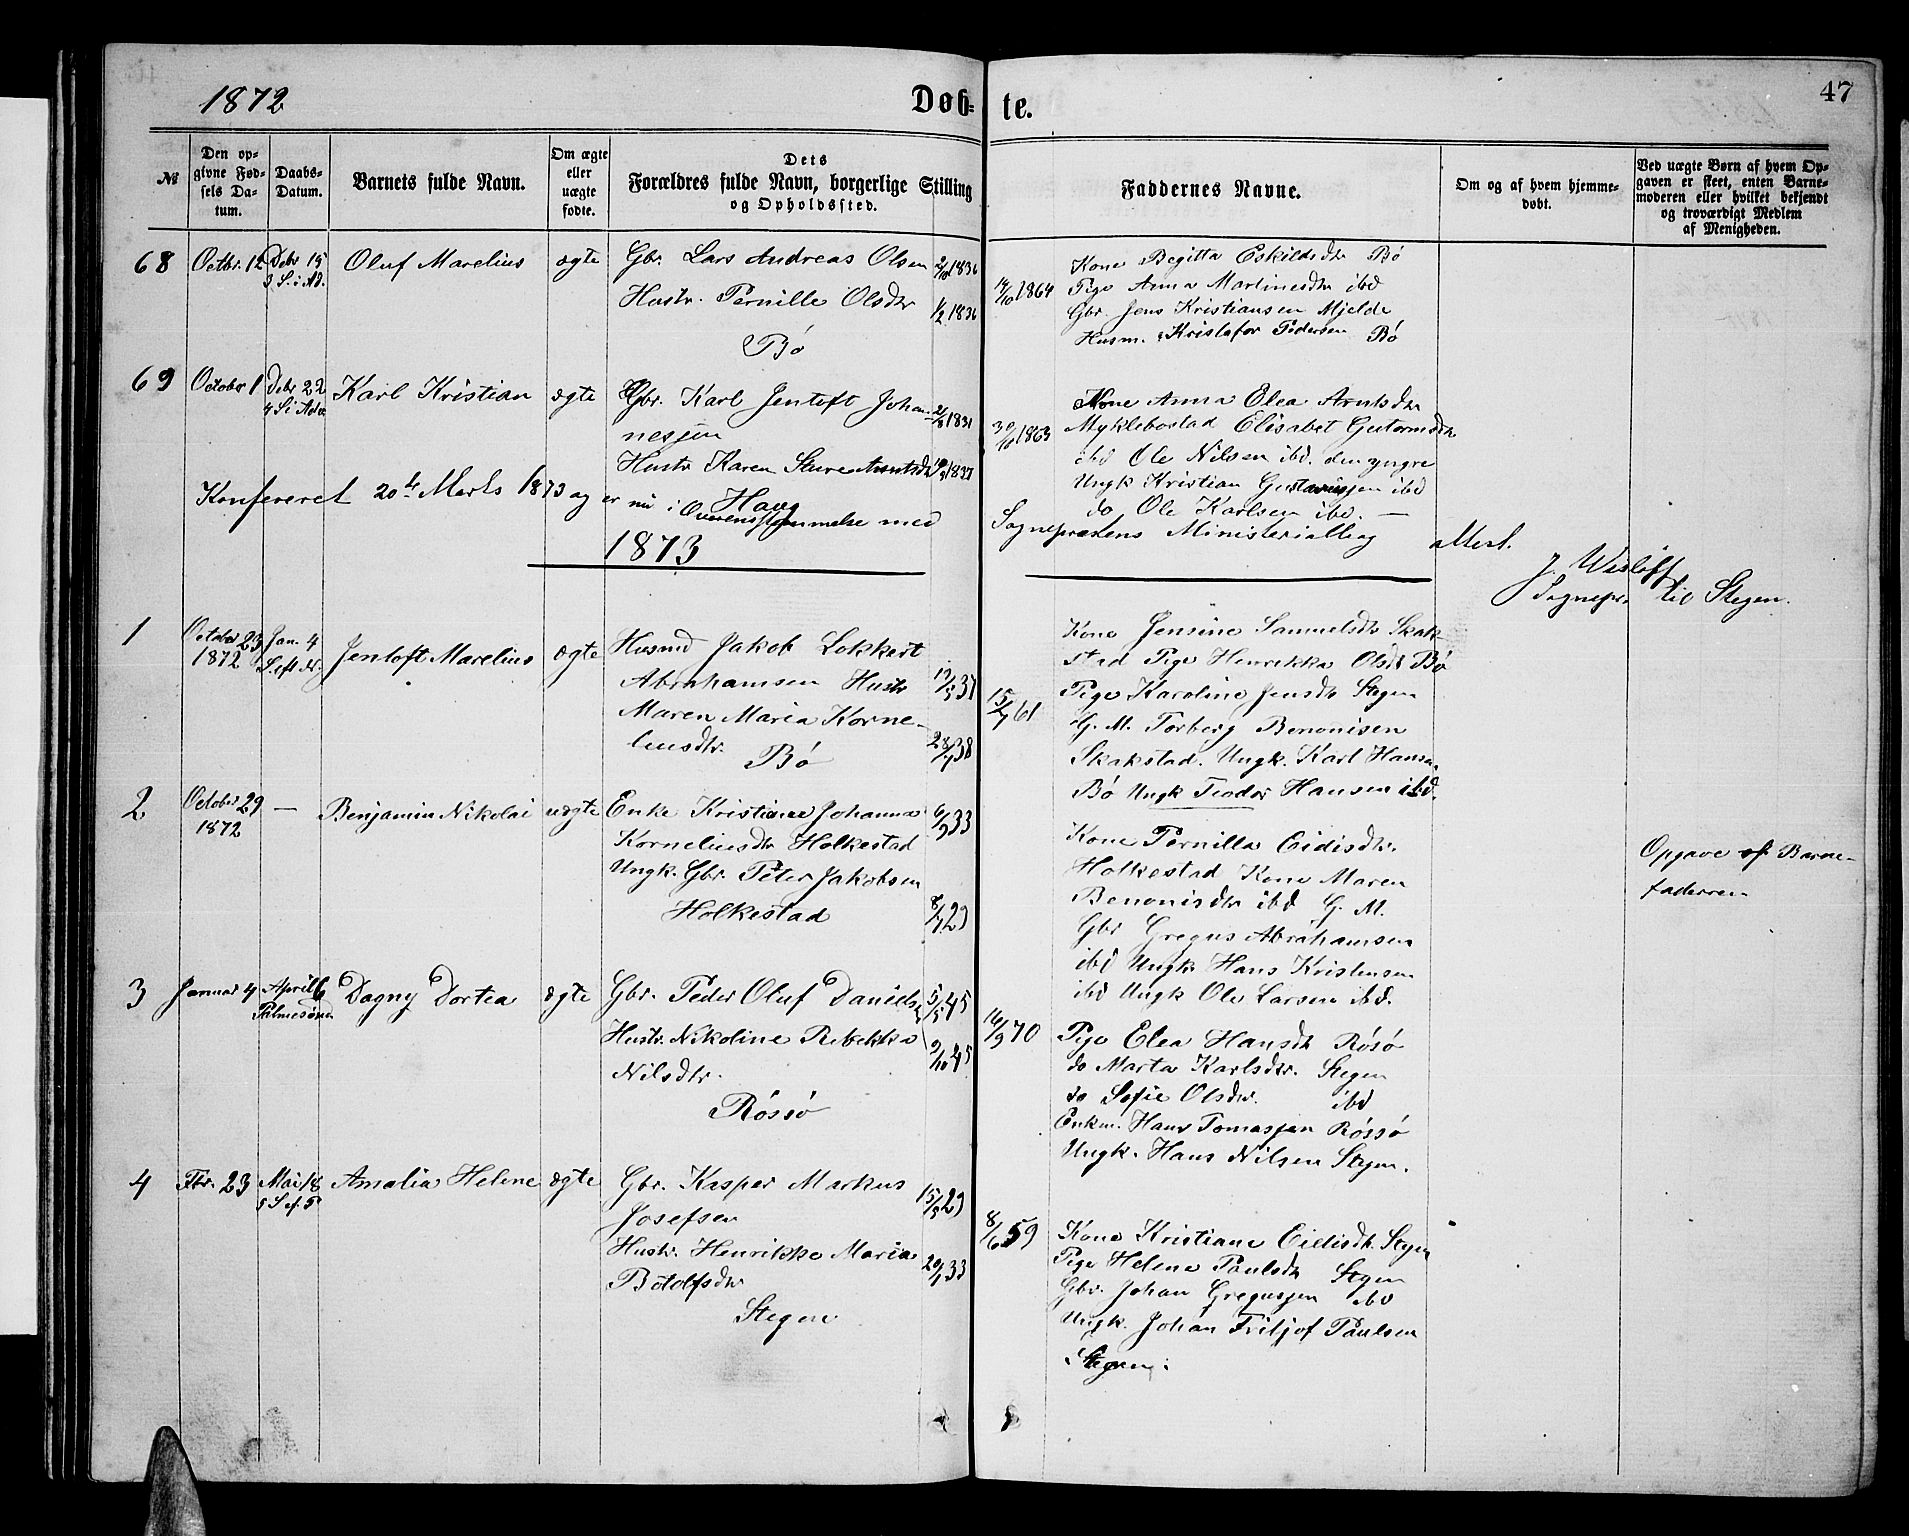 1872
Døb-
te.
47
№
Den op-
givne Fød-
sels Da-
tum.
Daabs-
Datum.
Barnets fulde Navn.
Om ægte
eller
uægte
fødte.
Dets
Forældres fulde Navn, borgerlige Stilling
og Opholdssted.
Faddernes Navne.
Om og af hvem hjemme-
døbt.
Ved uægte Børn af hvem Op-
gaven er skeet, enten Barne-
moderen eller hvilket bekjendt
og troværdigt Medlem
af Menigheden.
68 Octbr. 12 Debr 15
3 S. i Ad.
Oluf Marelius ægte
Gbr. Lars Andreas Olsen 1836
Hustr. Pernille Olsdtr 1/2 1836
Bø
14/10 1864
Kone Begitta Eskildsdtr Bø
Pige Anna Martinesdtr ibd
Gbr. Jens Kristiansen Mjelde
Husm. Kristofor Pedersen Bø
69 October 1 Debr 22
4 S i Adv
Karl Kristian ægte
Gbr. Karl Jentoft Johan- 1831
nessen
Hustr Karen Arntsdtr 1837
Haug
1863
Kone Anna Olea Arntsdtr
Myklebostad Elisabet Guttormsdtr
ibd Ole Nilsen ibd. den yngre
Ungk Kristian Gustavussen ibd
do Ole Karlsen ibd. —
Konfereret 20de Marts 1873 og er nu i Overensstemmelse med
Sognepræstens Ministerialbog attest.
J. Wisløff
Sognepr. til Stegen.
1873
1 October 23
1872
Jan. 4
S. eft N.
Jentoft Marelius ægte
Husmd Jakob Lokkert
Abrahamsen Hustr 37
Maren Maria Korne-
liusdtr. 38
Bø
15/7 61
Kone Jensine Samuelsdtr Skak-
stad Pige Henrikka Olsdtr Bø
Pige Karoline Jensdtr Stegen
G. M. Torberg Benonisen
Skakstad. Ungk. Karl Hansen
Bø Ungk Teodor Hansen ibd.
2 October 29
1872
—
Benjamin Nikolai uægte
Enke Kristiane Johanna 6/9 33
Korneliusdtr Holkestad
Ungk. Gbr. Peter Jakobsen
Holkestad 8/1 29
Kone Pernilla Eidisdtr.
Holkestad Kone Maren
Benonisdtr ibd G. M.
Gbr Gregus Abrahamsen
ibd Ungk Hans Kristensen
ibd Ungk Ole Larsen ibd.
Opgave af Barne-
faderen
3 Januar 4 April 6
Palmesønd
Dagny Dortea ægte
Gbr. Peder Oluf Daniels. 5/5 45
Hustr. Nikoline Rebekka 9/10 45
Nilsdtr.
Røssø
16/9 70
Pige Elea Hansdtr Røsø
do Marta Karlsdtr. Stegen
do Sofie Olsdtr. ibd
Enkm. Hans Tomassen Røssø
Ungk. Hans Nilsen Stegen.
4 Fbr. 23 Mai 18
5 S ef. P
Amalia Helene ægte
Gbr. Kasper Markus 29
Josefsen
Hustr. Henrikke Maria 20/1 33
Botolfsdtr
Stegen
8/6 59
Kone Kristiane Eidisdtr. Stegen
Pige Helene Paulsdtr Stegen
Gbr. Johan Gregussen ibd
Ungk. Johan Fritjof Paulsen
Stegen.